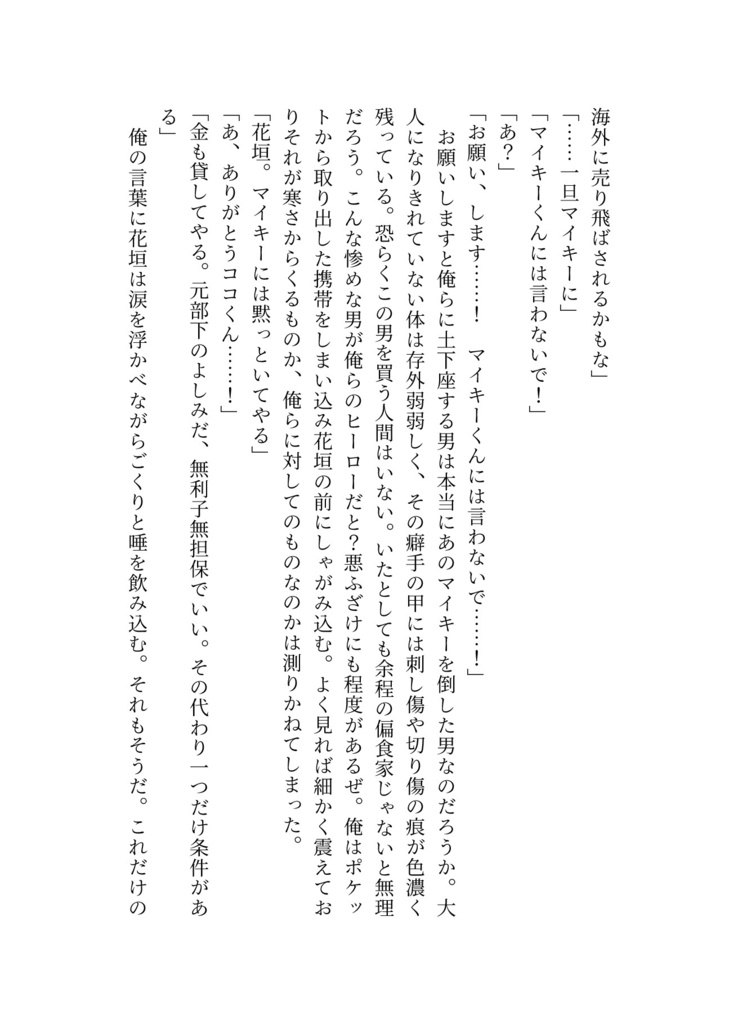 海外に売り飛ばされるかもな」
「……一旦マイキーに」
「マイキーくんには言わないで！」
「あ？」
「お願い、します……！　マイキーくんには言わないで……！」
　お願いしますと俺らに土下座する男は本当にあのマイキーを倒した男なのだろうか。大
人になりきれていない体は存外弱弱しく、その癖手の甲には刺し傷や切り傷の痕が色濃く
残っている。恐らくこの男を買う人間はいない。いたとしても余程の偏食家じゃないと無理
だろう。こんな惨めな男が俺らのヒーローだと？悪ふざけにも程度があるぜ。俺はポケッ
トから取り出した携帯をしまい込み花垣の前にしゃがみ込む。よく見れば細かく震えてお
りそれが寒さからくるものか、俺らに対してのものなのかは測りかねてしまった。
「花垣。マイキーには黙っといてやる」
「あ、ありがとうココくん……！」
「金も貸してやる。元部下のよしみだ、無利子無担保でいい。その代わり一つだけ条件があ
る」
　俺の言葉に花垣は涙を浮かべながらごくりと唾を飲み込む。それもそうだ。これだけの